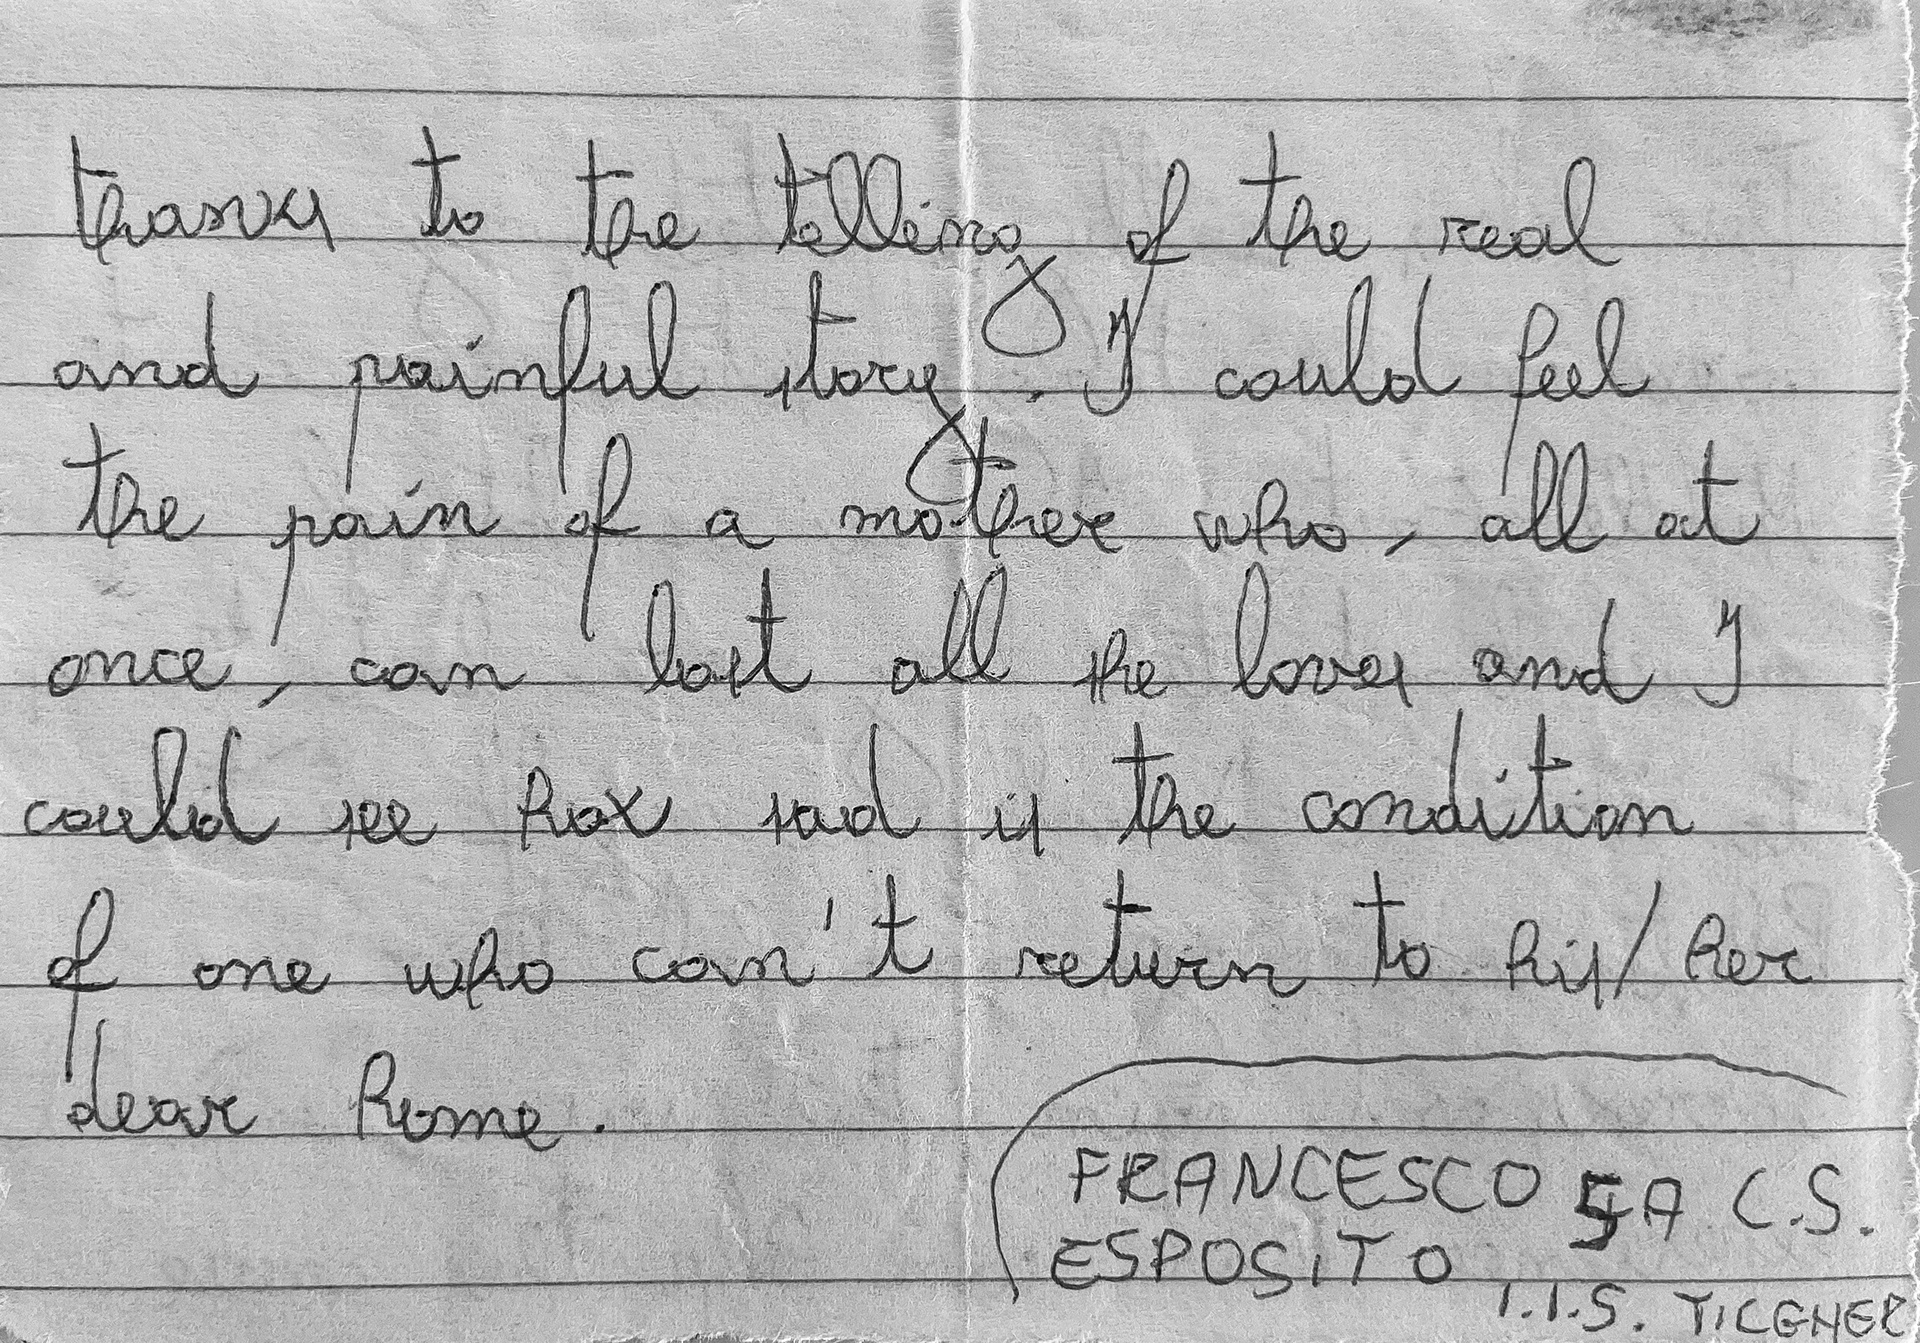 thanks to the telling of the real
and painful story. I could feel
the pain of a mother who, all at
once, can lost all the loves and I
could see how sad is the condition
of one who can't return to his/her
dear home.
FRANCESCO 5A C.S.
ESPOSITO
I.I.S. TILGHER